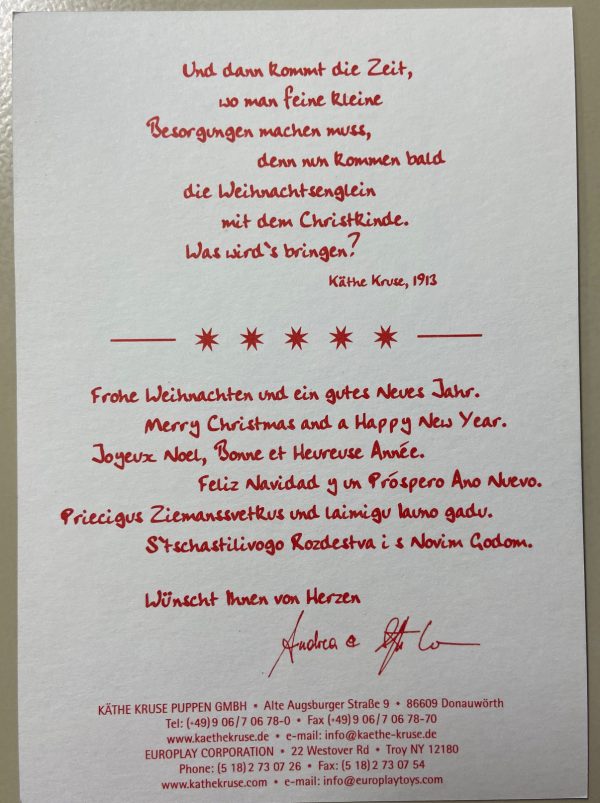 Und dann kommt die Zeit,
wo man feine kleine
Besorgungen machen muss,
denn nun kommen bald
die Weihnachtsenglein
mit dem Christkinde.
Was wird`s bringen?
Käthe Kruse, 1913
Frohe Weihnachten und ein gutes Neues Jahr.
Merry Christmas and a Happy New Year.
Joyeux Noel, Bonne et Heureuse Année.
Feliz Navidad y un Próspero Ano Nuevo.
Priecigus Ziemanssvetkus und laimigu launo gadu.
S'tschastilivogo Rozdestva i s Novim Godom.
Wünscht Ihnen von Herzen
Andrea &
KÄTHE KRUSE PUPPEN GMBH • Alte Augsburger Straße 9 • 86609 Donauwörth
Tel: (+49) 9 06/7 06 78-0 • Fax (+49) 9 06/7 06 78-70
www.kaethekruse.de • e-mail: info@kaethe-kruse.de
EUROPLAY CORPORATION • 22 Westover Rd • Troy NY 12180
Phone: (5 18) 2 73 07 26 • Fax: (5 18) 2 73 07 54
www.kathekruse.com • e-mail: info@europlaytoys.com